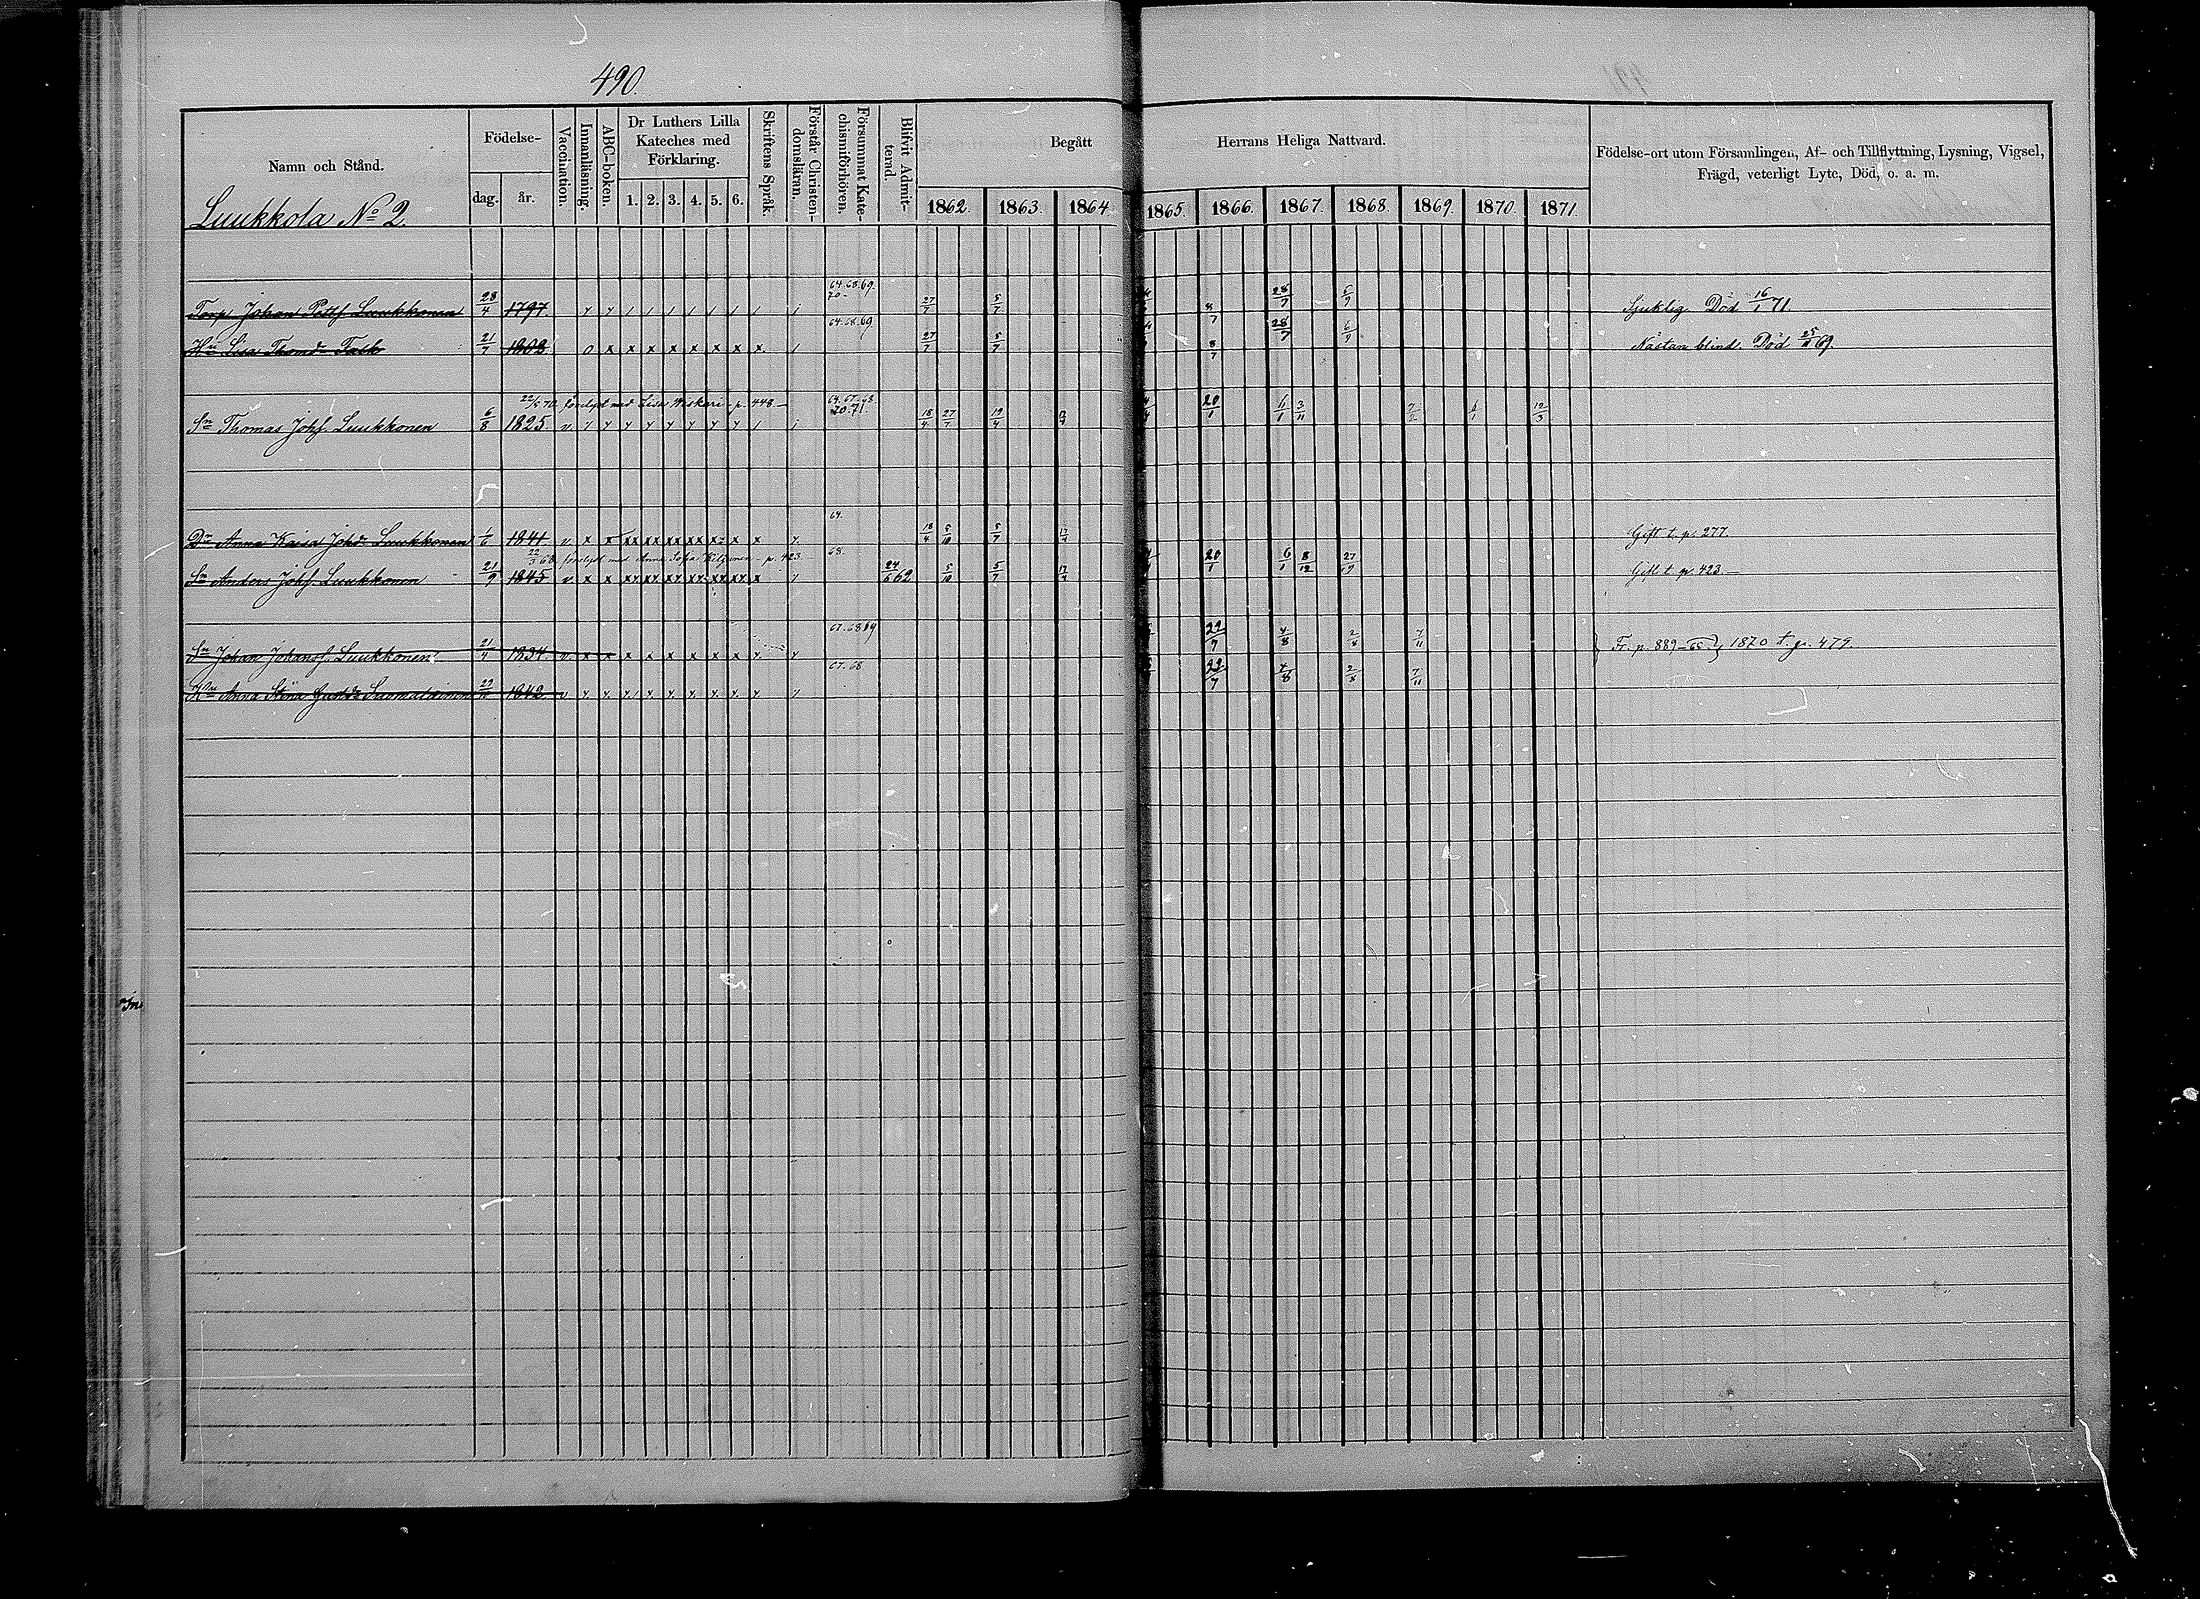 490.
Namn och Stånd.
Födelse-
dag.
år.
Vaccination.
Innanläsning.
ABC-boken.
Dr Luthers Lilla
Kateches med
Förklaring.
1. 2. 3. 4. 5. 6.
Skriftens Språk.
Förstår Christen-
domsläran.
Försummat Kate-
chismiförhören.
Blifvit Admit-
terad.
Begått Herrans Heliga Nattvard.
1862. 1863. 1864. 1865. 1866. 1867. 1868. 1869. 1870. 1871.
Födelse-ort utom Församlingen, Af- och Tillflyttning, Lysning, Vigsel,
Frägd, veterligt Lyte, Död, o. a. m.
Luukkola No 2.
64.68.69.
70-
Torp. Johan Luukkonen 28/4 1797. 27/7 5/7 8/7 28/7 5/9 Sjuklig. Död 16/1 71.
64.68.69.
Hu Lisa Thomdr 21/7 1802 27/7 5/7 8/7 28/7 6/9 Nästan blind. Död 69.
22/5 70 förelyst med Lisa p. 448.-
70.71.
Sn Thomas Johsf. Luukkonen 6/8 1825. v 18/4 27/7 19/4 20/1 6/1 3/11 7/2 6/1 12/3
64.
Dr Anna Kaisa Johdr Luukkonen 1/6 1841 v x x 18/4 5/10 5/7 17/4 Gift t. p. 277.
22/3 68 förelyst med Anna Sofia Kiljunen p. 423
68.
Sn Anders Johsf. Luukkonen 21/9 1845 v x x 24/6 62 5/10 5/7 17/4 20/1 6/1 8/12 27/9 Gift t. p. 423.-
67.68.69
Sn Johan Johansf. Luukkonen 21/4 1834. v. x x 22/7 4/8 2/8 7/11 Fr. p. 889 1870 t. p. 479.
67.68
Hu Anna Stina 1842 v 22/7 4/8 2/8 7/11